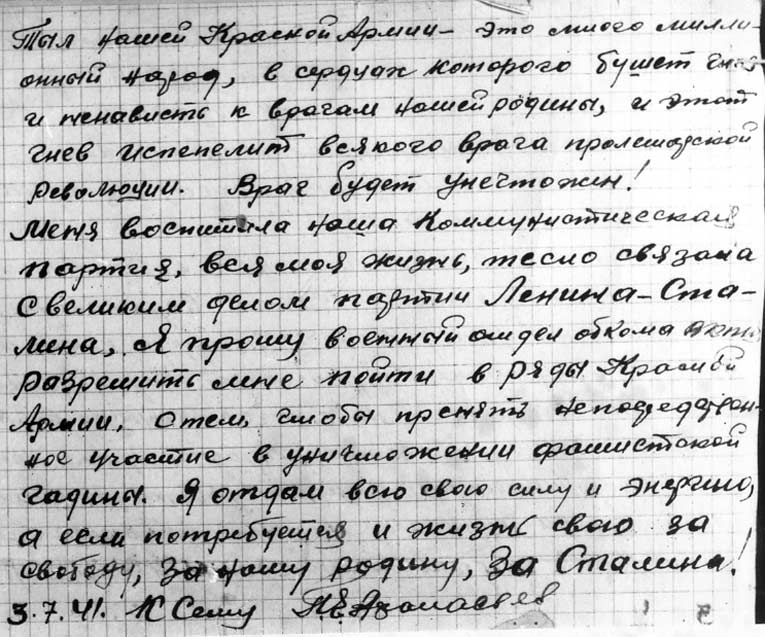 Тыл нашей Красной Армии – это много милли-
онный народ, в сердцах которого будет гнев
и ненависть к врагам нашей родины, и этот
гнев испепелит всякого врага пролетарской
революции. Враг будет уничтожен!
Меня воспитала наша Коммунистическая
партия, вся моя жизнь, тесно связана
с великим делом партии Ленина–Ста-
лина, Я прошу военный отдел обкома
разрешить мне пойти в ряды Красной
Армии, с тем, чтобы пренять непосредствен-
ное участие в уничтожении фашистской
гадины. Я отдам всю свою силу и энергию,
а если потребуется и жизнь свою за
свободу, за нашу родину, за Сталина!
3.7.41. К Сему